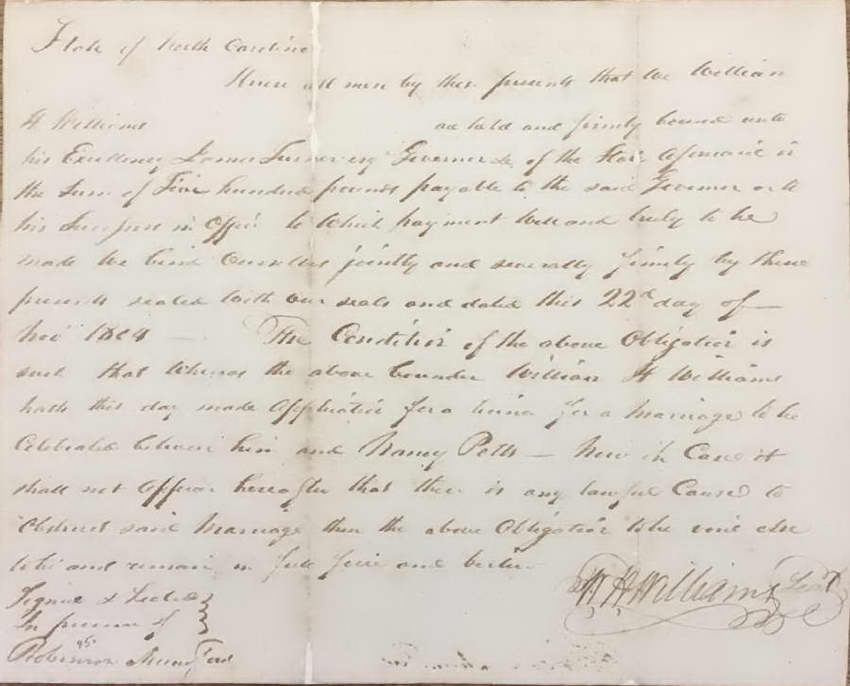 State of North Carolina
Know all men by these presents that we William
H Williams are held and firmly bound unto
his Excellency James Turner esq Governor &c of the State aforesaid in
the Sum of Five hundred pounds payable to the said Governor or to
his Successors in Office to Which payment Well and truly to be
made We bind Ourselves jointly and severally firmly by these
presents sealed with our seals and dated this 22d day of
Nov 1804 The Condition of the above Obligation is
such that Whereas the above bounden William H Williams
hath this day made Application for a license for a Marriage to be
Celebrated between him and Nancy Potts Now in Case it
shall not Appear hereafter that there is any lawful Cause to
Obstruct said Marriage then the above Obligation to be void else
to be and remain in full force and virtue
Signed & Sealed
In presence of
Robinson Mumford
W H Williams Seal